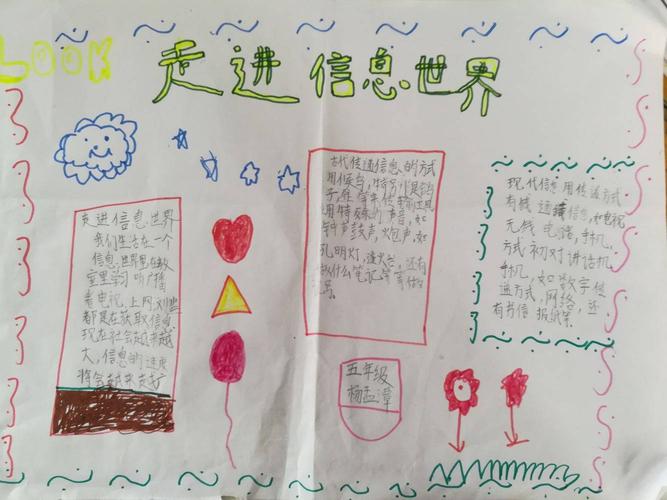 LOOK
走进信息世界
走进信息世界
我们生活在一个
信息世界里在教
室里学习听广播
看电视,上网,浏览
都是在获取信息
现在社会越来越
大,信息的速度
将会越来越
古代传递信息的方式
用候鸟,特别
用特殊的声音,如
钟声鼓声,火包声,如
孔明灯,逢火兰,还有
做什么笔记等等做的
现代信息用传递方式
有线通信息,如电视
无线电路,手机,
方式初对讲话机
手机,如数字传
递方式,网络,还
有书信报纸等
五年级
杨孟漳